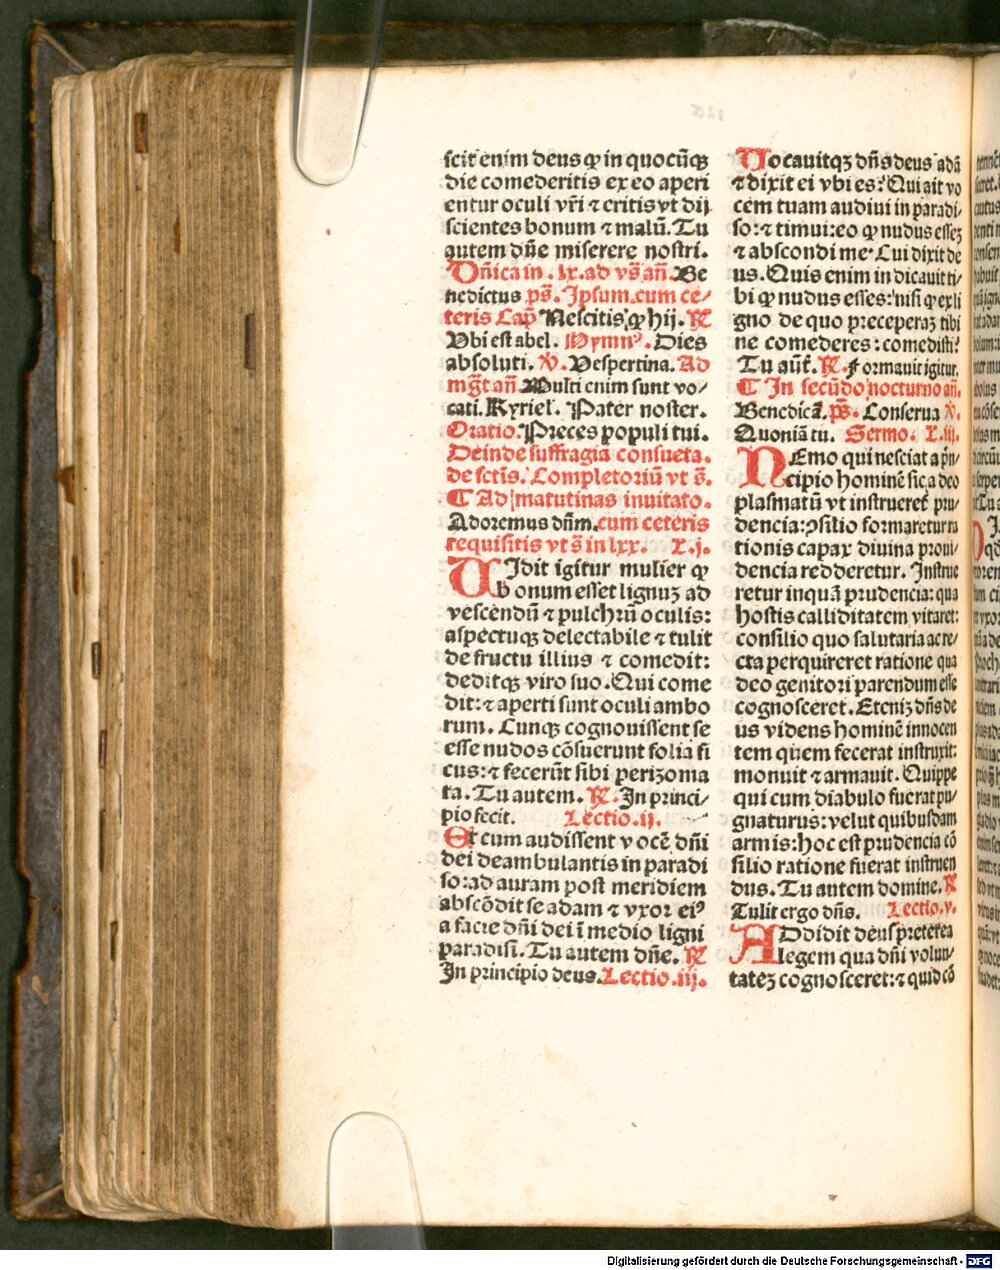 scit enim deus ꝙ in quocūqꝫ
die comederitis ex eo aperi
entur oculi vr̄i ⁊ critis vt dij
scientes bonum ⁊ malū. Tu
autem dn̄e miserere nostri.
Dn̄ica in .lx. ad vs̄ an̄. Be
nedictus ps̄. Ipsum. cum ce/
teris Cap̄ Nescitis ꝙ hij. ℟
Vbi est abel. Hymnꝰ. Dies
absoluti. ℣. Vespertina. Ad
mḡt an̄ Multi enim sunt vo/
cati. Kyriel. Pater noster.
Oratio. Preces populi tui.
Deinde suffragia consueta.
de sctīs. Completoriū vt s̄.
¶ Ad matutinas inuitato.
Adoremus dn̄m. cum ceteris
requisitis vt s̄ in lxx. L.j.
VIdit igitur mulier ꝙ
bonum esset lignuꝫ ad
vescendū ⁊ pulchrū oculis:
aspectuqꝫ delectabile ⁊ tulit
de fructu illius ⁊ comedit:
deditqꝫ viro suo. Qui come
dit: ⁊ aperti sunt oculi ambo
rum. Cunqꝫ cognouissent se
esse nudos cōsuerunt folia fi
cus: ⁊ fecerūt sibi perizoma
ta. Tu autem. ℟. In princi/
pio fecit. Lectio .ij.
Et cum audissent vocē dn̄i
dei deambulantis in paradi
so: ad auram post meridiem
abscōdit se adam ⁊ vxor eiꝰ
a facie dn̄i dei ī medio ligni
paradisi. Tu autem dn̄e. ℟
In principio deus. Lectio .iij.
Uocauitqꝫ dn̄s deus adā
⁊ dixit ei vbi es? Qui ait vo
cem tuam audiui in paradi/
so: ⁊ timui: eo ꝙ nudus esseꝫ
⁊ abscondi me. Cui dixit de
us. Quis enim indicauit ti/
bi ꝙ nudus esses: nisi ꝙ ex li
gno de quo preceperaꝫ tibi
ne comederes: comedisti?
Tu aūt. ℟. Formauit igitur.
¶ In secūdo nocturno an̄.
Benedicā. ps̄. Conserua ℣.
Quoniā tu. Sermo. L.iiij.
NEmo qui nesciat a prīn
cipio hominē sic a deo
plasmatū vt instrueret pru/
dencia: ꝯsilio formaretur ra
tionis capax diuina proui/
dencia redderetur. Instrue
retur inquā prudencia: qua
hostis calliditatem vitaret:
consilio quo salutaria ac re/
cta perquireret ratione qua
deo genitori parendum esse
cognosceret. Eteniꝫ dn̄s de
us videns hominē innocen
tem quem fecerat instruxit:
monuit ⁊ armauit. Quippe
qui cum diabulo fuerat pu/
gnaturus: velut quibusdam
armis: hoc est prudencia cō
silio ratione fuerat instruen
dus. Tu autem domine. ℟
Tulit ergo dn̄s. Lectio .v.
ADdidit deus preterea
legem qua dn̄i volun/
tateꝫ cognosceret: ⁊ quid cō
Digitalisierung gefördert durch die Deutsche Forschungsgemeinschaft - DFG